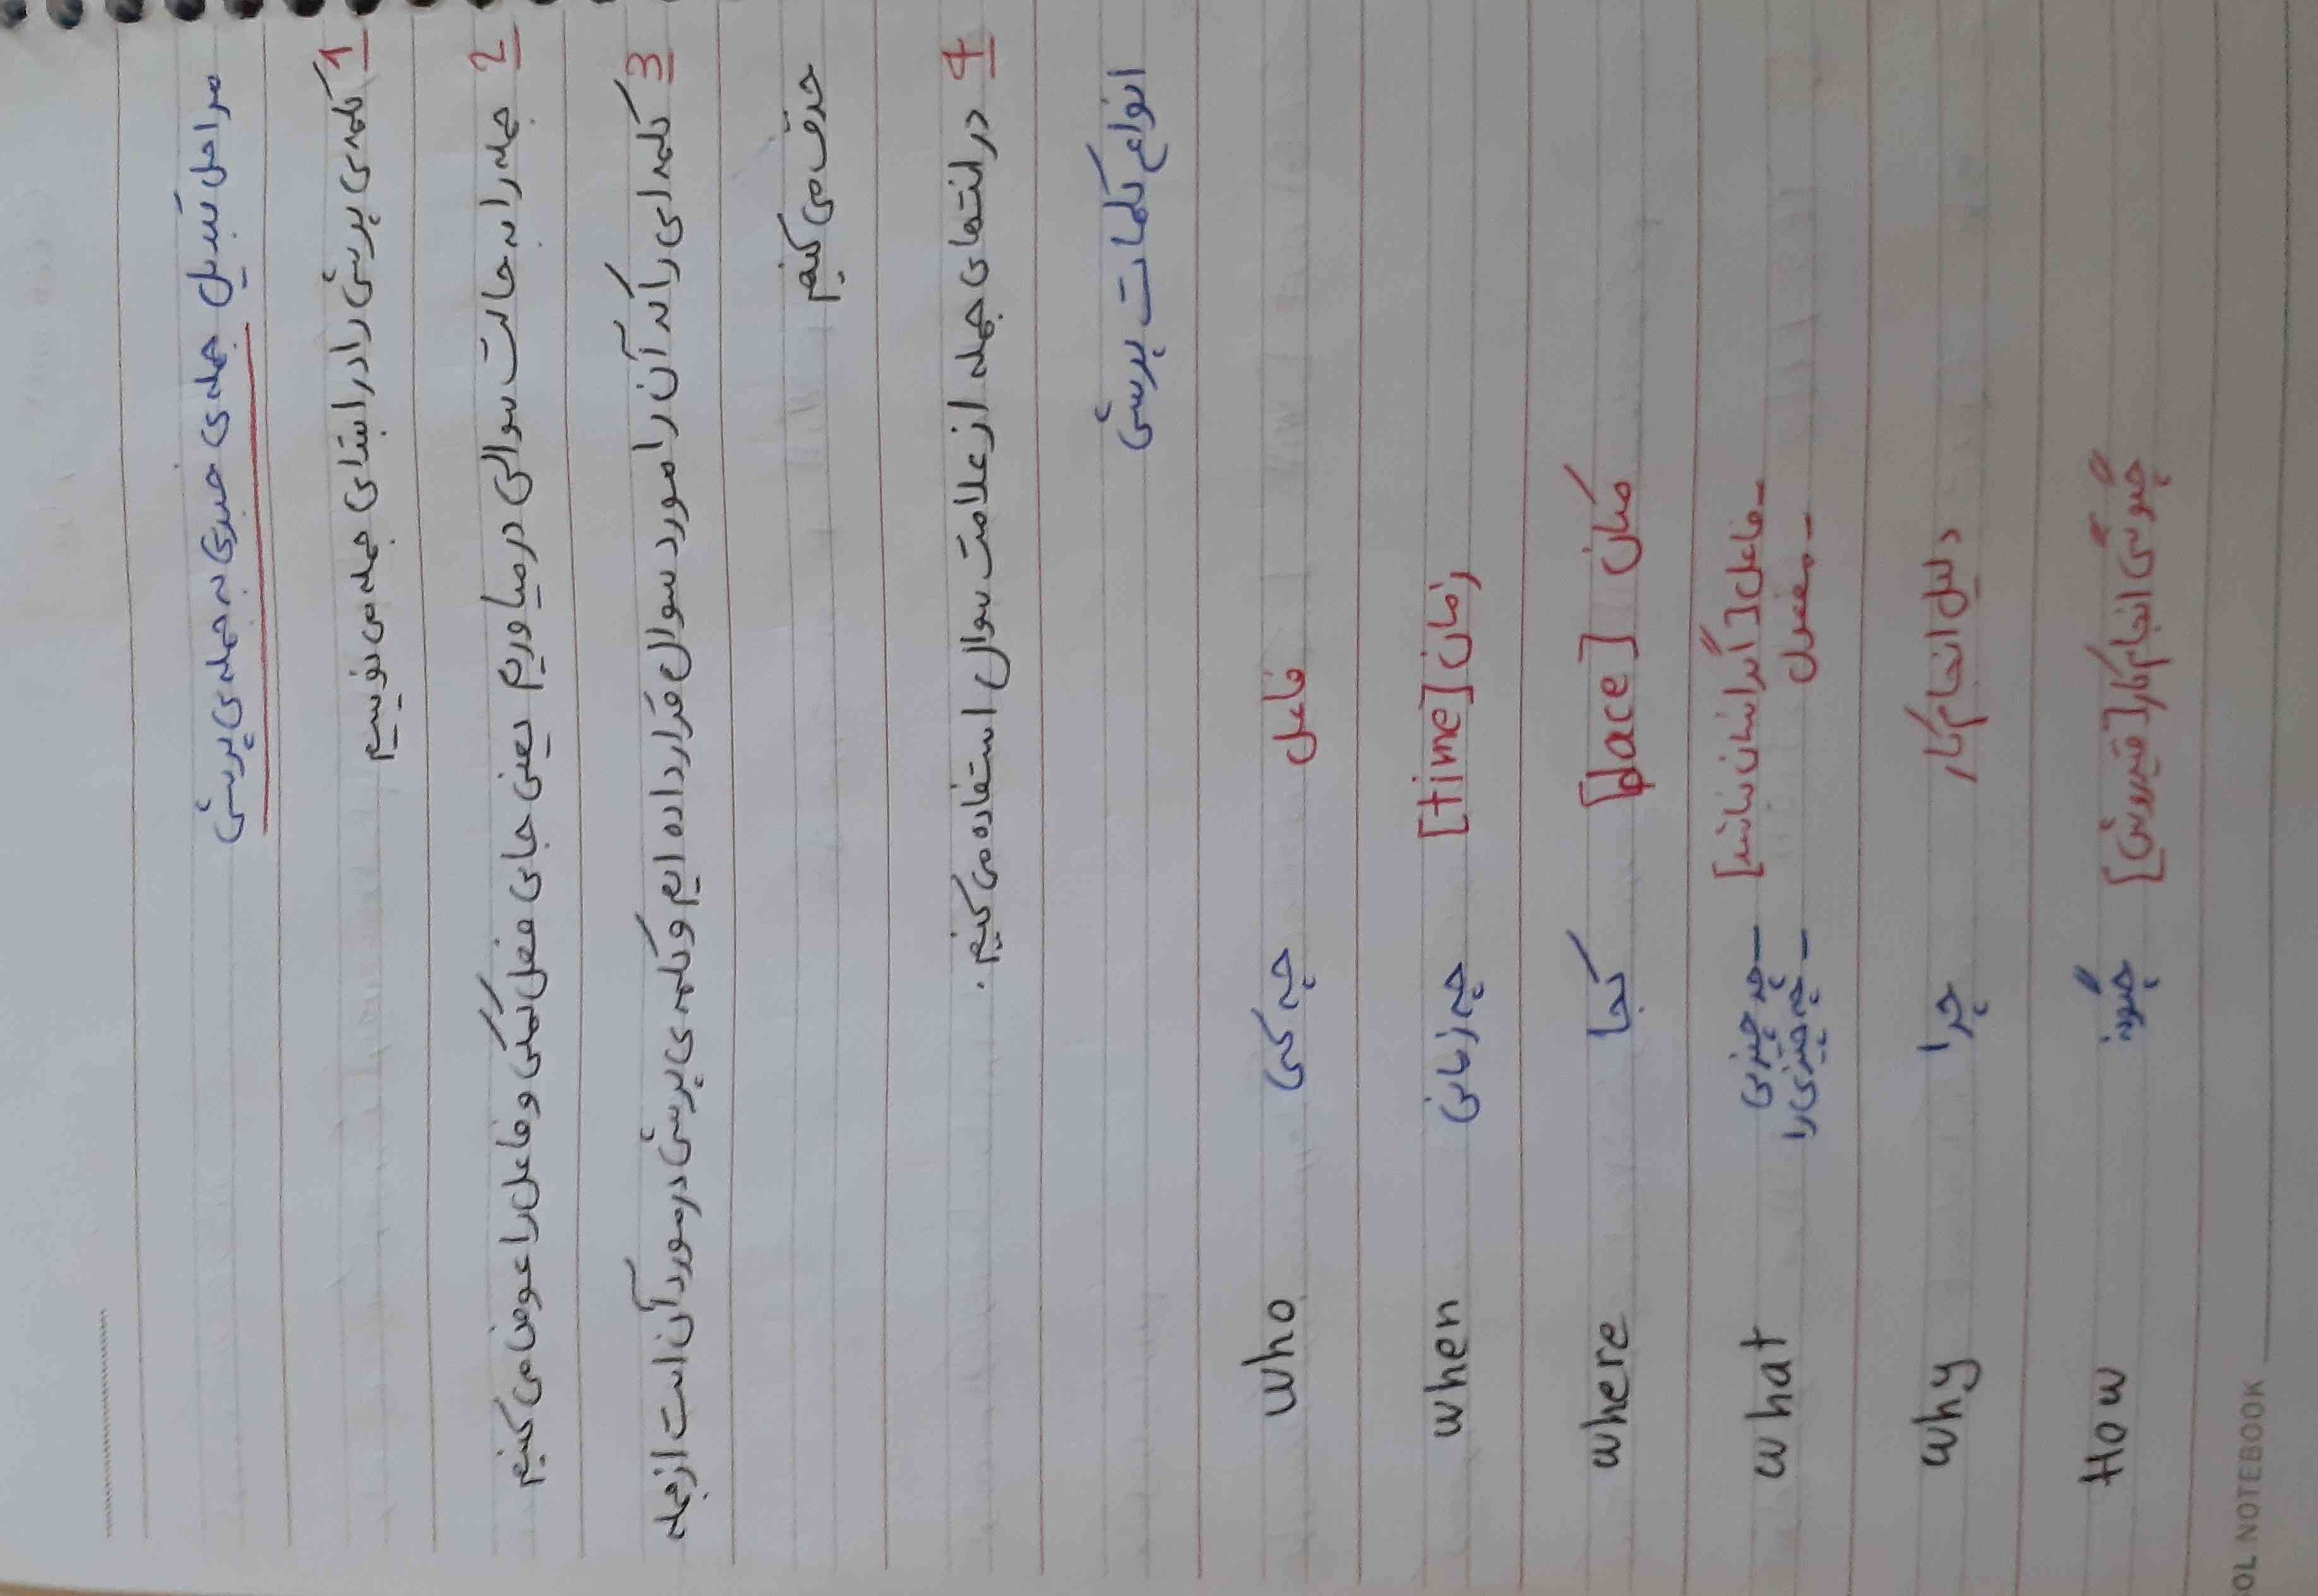 مراحل تبدیل جمله ی خبری به جمله ی پرسشی
1 کلمه ی پرسشی را در ابتدای جمله می نویسیم
2 جمله را به حالت سوالی درمیاوریم یعنی جای فعل کمکی و فاعل را عوض می کنیم
3 کلمه ای را که آن را مورد سوال قرار داده ایم و کلمه ی پرسشی در مورد آن است از جمله
حذف می کنیم
4 در انتهای جمله از علامت سوال استفاده می کنیم.
انواع کلمات پرسشی
who چه کسی فاعل
when چه زمانی زمان [time]
where کجا مکان [place]
what - چه چیزی - فاعل [اگر انسان نباشد]
- چه چیزی را - مفعول
why چرا دلیل انجام کار
How چگونه چگونگی انجام کار [قید روش]
OL NOTEBOOK